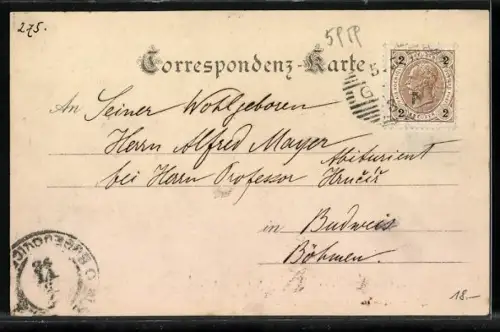 275.
Correspondenz-Karte
An Seiner Wohlgeboren
Herrn Alfred Mayer
Abiturient
bei Herrn Professor Hručíř
in Budweis
Böhmen.
2 2
2 2
18.-